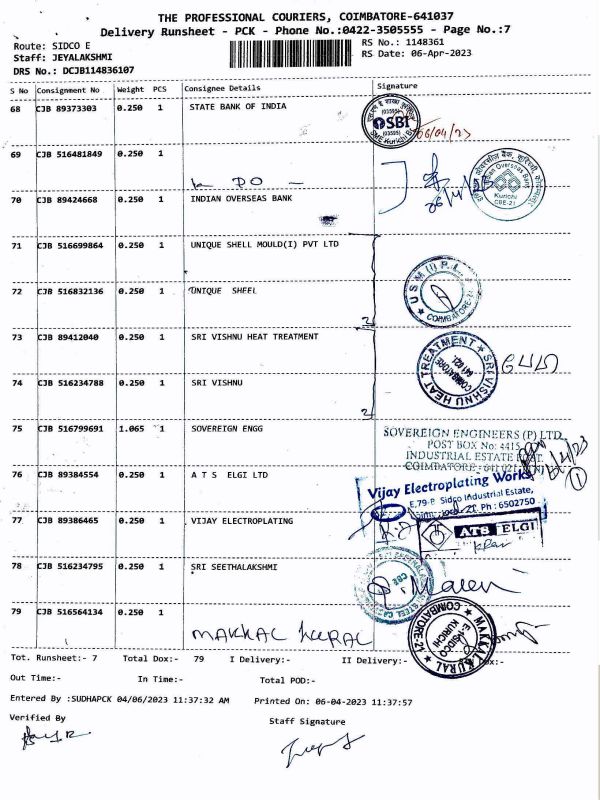 THE PROFESSIONAL COURIERS, COIMBATORE-641037
Delivery Runsheet - PCK - Phone No.:0422-3505555 - Page No.:7
Route: SIDCO E
RS No.: 1148361
Staff: JEYALAKSHMI
RS Date: 06-Apr-2023
DRS No.: DCJB114836107
S No Consignment No Weight PCS Consignee Details Signature
68 CJB 89373303 0.250 1 STATE BANK OF INDIA
SBI
(03595)
06/04/23
69 CJB 516481849 0.250 1
70 CJB 89424668 0.250 1 INDIAN OVERSEAS BANK
Indian Overseas Bank
Kurichi
CBE-21
71 CJB 516699864 0.250 1 UNIQUE SHELL MOULD(I) PVT LTD
U S M (I) P. L.
COIMBATORE-21
72 CJB 516832136 0.250 1 UNIQUE SHEEL
73 CJB 89412040 0.250 1 SRI VISHNU HEAT TREATMENT
SRI VISHNU HEAT TREATMENT
COIMBATORE
641 021.
74 CJB 516234788 0.250 1 SRI VISHNU
75 CJB 516799691 1.065 1 SOVEREIGN ENGG
SOVEREIGN ENGINEERS (P) LTD
POST BOX No: 4415
INDUSTRIAL ESTATE POST
COIMBATORE - 641 021
76 CJB 89384554 0.250 1 A T S ELGI LTD
Vijay Electroplating Works
E,79-B Sidco Industrial Estate,
Ph : 6502750
77 CJB 89386465 0.250 1 VIJAY ELECTROPLATING
ATS ELGI
78 CJB 516234795 0.250 1 SRI SEETHALAKSHMI
CBE
79 CJB 516564134 0.250 1
MAKKAL KURAL
MAKKAL KURAL
COIMBATORE-21
SIDCO
KURICHI
Tot. Runsheet:- 7 Total Dox:- 79 I Delivery:- II Delivery:- Dox:-
Out Time:- In Time:- Total POD:-
Entered By :SUDHAPCK 04/06/2023 11:37:32 AM Printed On: 06-04-2023 11:37:57
Verified By
Staff Signature